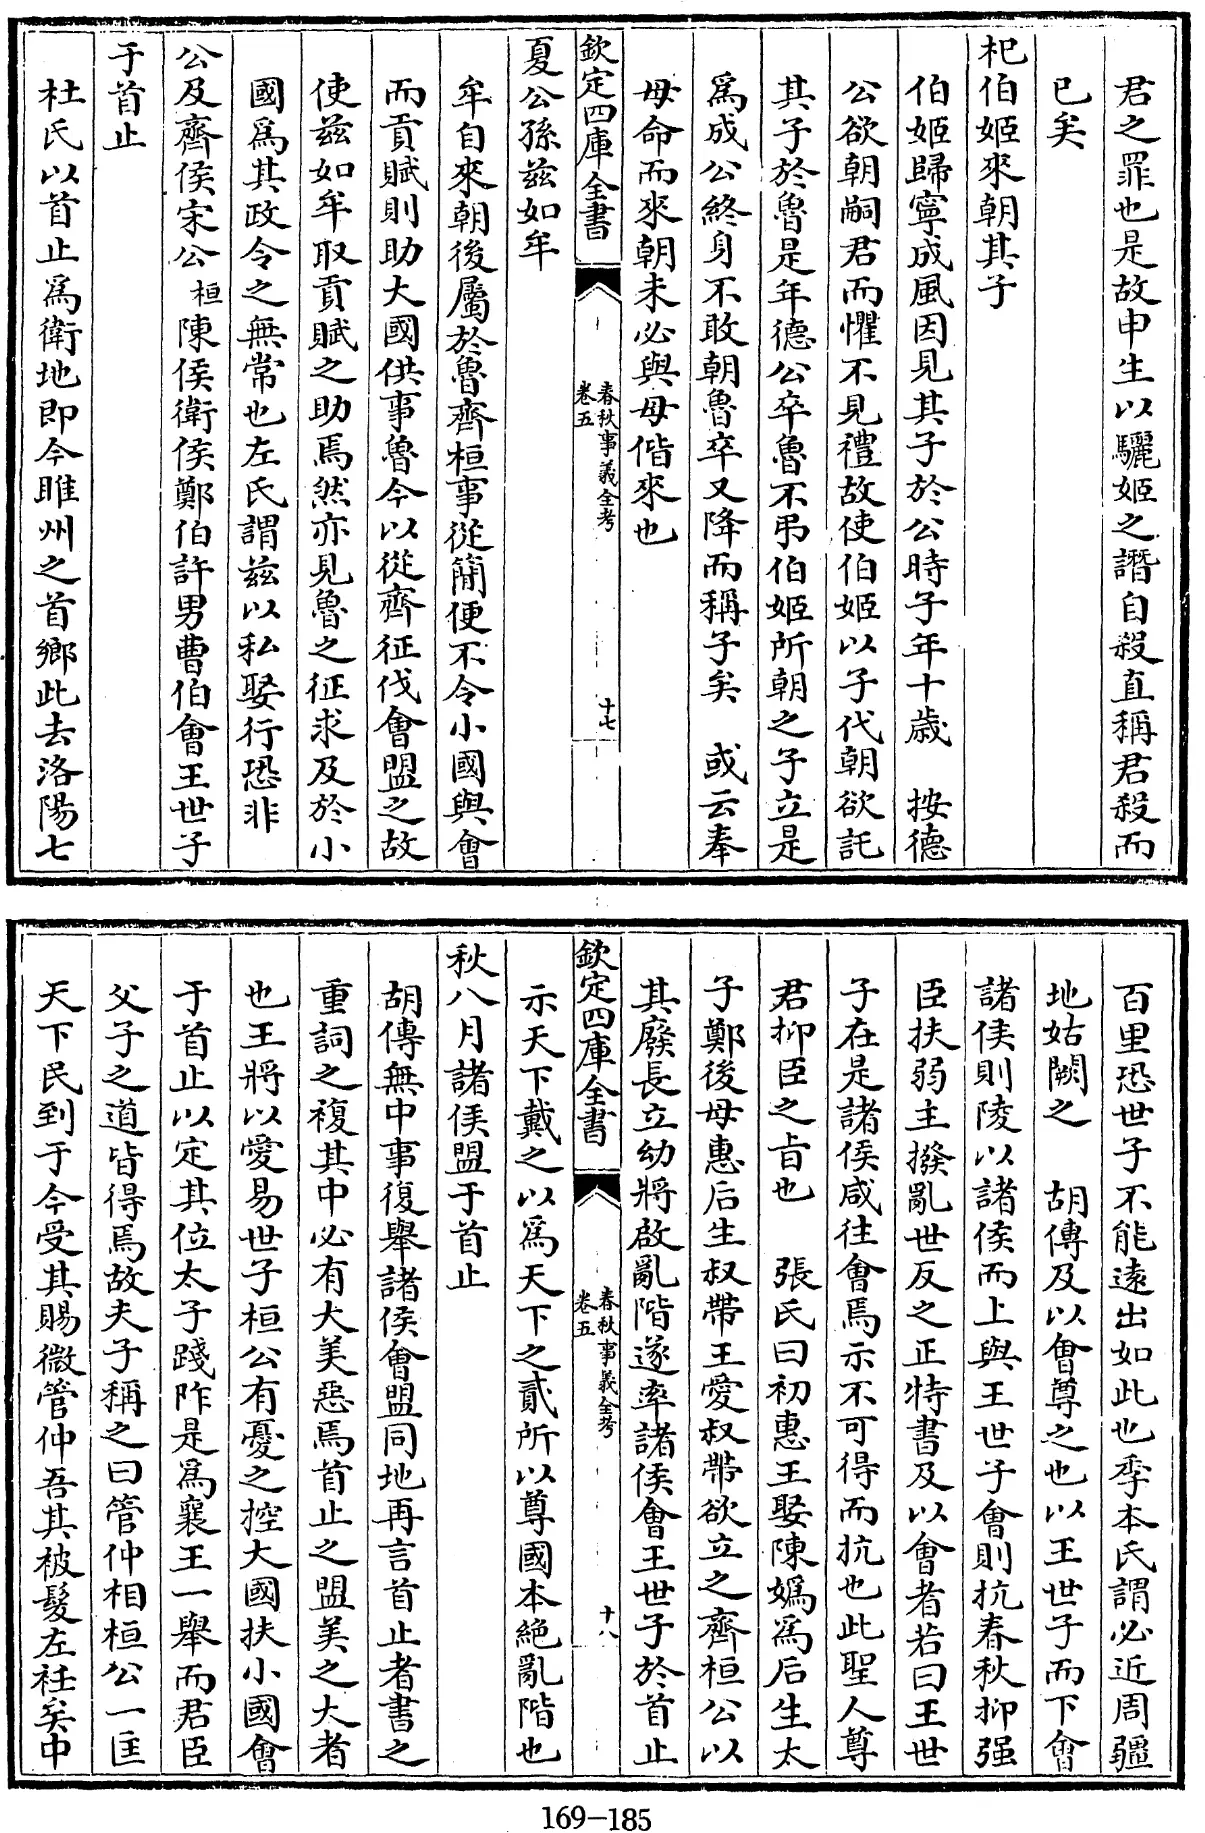 君之罪也是故申生以驪姬之譖自殺直稱君殺而
已矣
杞伯姬來朝其子
伯姬歸寧成風因見其子於公時子年十歲　按德
公欲朝嗣君而懼不見禮故使伯姬以子代朝欲託
其子於魯是年德公卒魯不弔伯姬所朝之子立是
爲成公終身不敢朝魯卒又降而稱子矣　或云奉
母命而來朝未必與母偕來也
欽定四庫全書
春秋事義全考
卷五
十七
夏公孫兹如牟
牟自來朝後屬於魯齊桓事從簡便不令小國與會
而貢賦則助大國供事魯今以從齊征伐會盟之故
使兹如牟取貢賦之助焉然亦見魯之征求及於小
國爲其政令之無常也左氏謂兹以私娶行恐非
公及齊侯宋公桓陳侯衛侯鄭伯許男曹伯會王世子
于首止
杜氏以首止爲衛地即今睢州之首鄉此去洛陽七
百里恐世子不能遠出如此也季本氏謂必近周疆
地姑闕之　胡傳及以會尊之也以王世子而下會
諸侯則陵以諸侯而上與王世子會則抗春秋抑强
臣扶弱主撥亂世反之正特書及以會者若曰王世
子在是諸侯咸往會焉示不可得而抗也此聖人尊
君抑臣之旨也　張氏曰初惠王娶陳媯爲后生太
子鄭後母惠后生叔帶王愛叔帶欲立之齊桓公以
其廢長立幼將啟亂階遂率諸侯會王世子於首止
欽定四庫全書
春秋事義全考
卷五
十八
示天下戴之以爲天下之貳所以尊國本絕亂階也
秋八月諸侯盟于首止
胡傳無中事復舉諸侯會盟同地再言首止者書之
重詞之複其中必有大美惡焉首止之盟美之大者
也王將以愛易世子桓公有憂之控大國扶小國會
于首止以定其位太子踐阼是爲襄王一舉而君臣
父子之道皆得焉故夫子稱之曰管仲相桓公一匡
天下民到于今受其賜微管仲吾其被髮左衽矣中
169-185